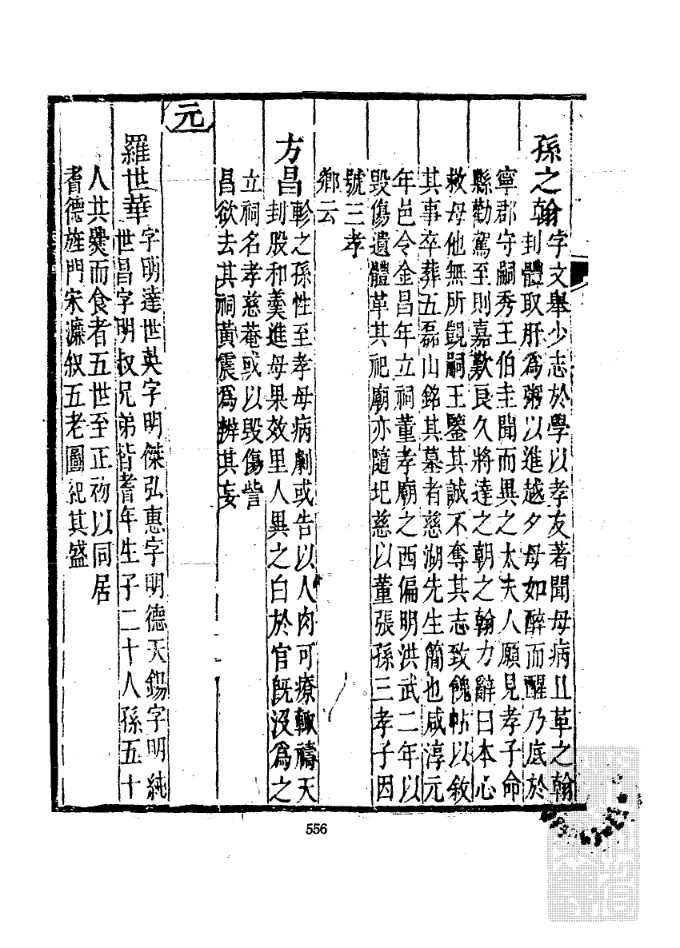 孫之翰字文舉少志於學以孝友著聞母病且革之翰
封體取肝爲粥以進越夕母如醉而醒乃底於
寧郡守嗣秀王伯圭聞而異之太夫人願見孝子命
縣勸駕至則嘉歎良久將達之朝之翰力辭曰本心
救母他無所覬嗣王鑒其誠不奪其志致餽帖以敘
其事卒葬五磊山銘其墓者慈湖先生簡也咸淳元
年邑令金昌年立祠董孝廟之西偏明洪武二年以
毀傷遺體革其祀廟亦隨圮慈以董張孫三孝子因
號三孝
鄉云
方昌軫之孫性至孝母病劇或告以人肉可療輙禱天
封股和羹進母果效里人異之白於官旣沒爲之
立祠名孝慈菴或以毀傷訾
昌欲去其祠黃震爲辨其妄
元
羅世華字明達世英字明傑弘惠字明德天錫字明純
世昌字明叔兄弟皆耆年生子二十人孫五十
人共爨而食者五世至正初以同居
耆德旌門宋濂叙五老圖紀其盛
556